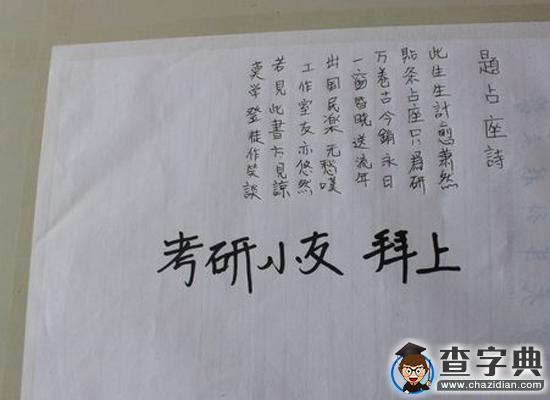 題占座詩
此生生計愈蕭然
貼条占座只為研
万卷古今銷永日
一窗昏曉送流年
出国民楽无愁嘆
工作室友亦悠然
若見此書見諒
莫学登徒作笑談
考研小友 拜上
查字典
www.chazidian.com